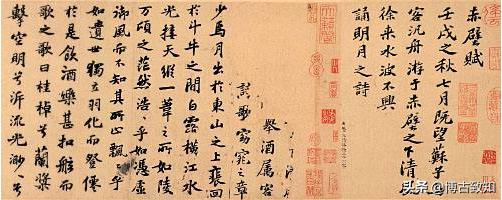 赤壁賦
壬戌之秋七月既望蘇子
客泛舟游于赤壁之下清
徐來水波不興
誦明月之詩
舉酒屬客
歌窈窕之章
少焉月出於東山之上裵回
於斗牛之間白露橫江水
光接天縱一葦之所如陵
萬頃之茫然浩〻乎如憑虛
御風而不知其所止飄〻乎
如遺世獨立羽化而登僊
於是飲酒樂甚扣舷而
歌之歌曰桂棹兮蘭槳
擊空明兮泝流光渺〻兮
头条 @博古致知